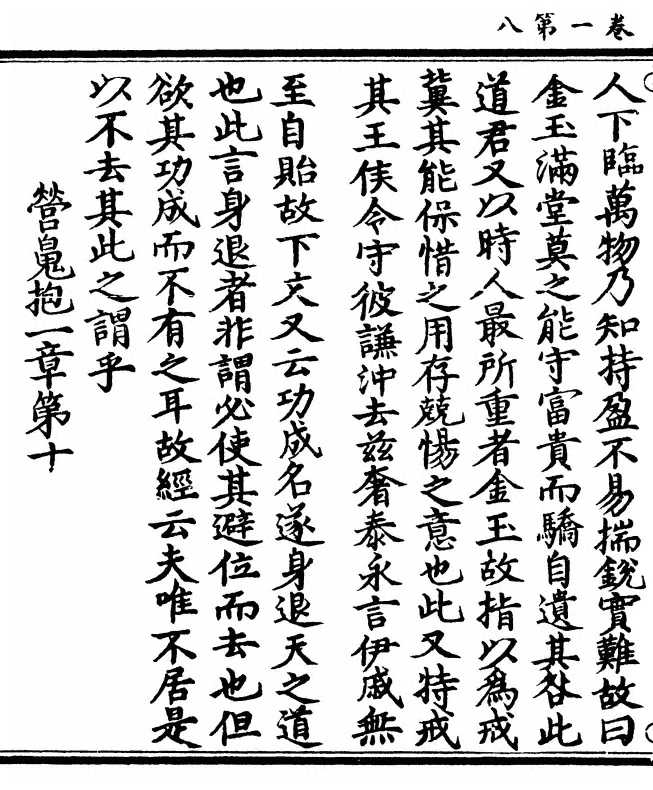 卷一第八
人下臨萬物乃知持盈不易揣銳實難故曰
金玉滿堂莫之能守富貴而驕自遺其咎此
道君又以時人最所重者金玉故指以爲戒
冀其能保惜之用存兢惕之意也此又特戒
其王侯令守彼謙沖去兹奢泰永言伊戚無
至自貽故下文又云功成名遂身退天之道
也此言身退者非謂必使其避位而去也但
欲其功成而不有之耳故經云夫唯不居是
以不去其此之謂乎
營䰟抱一章第十